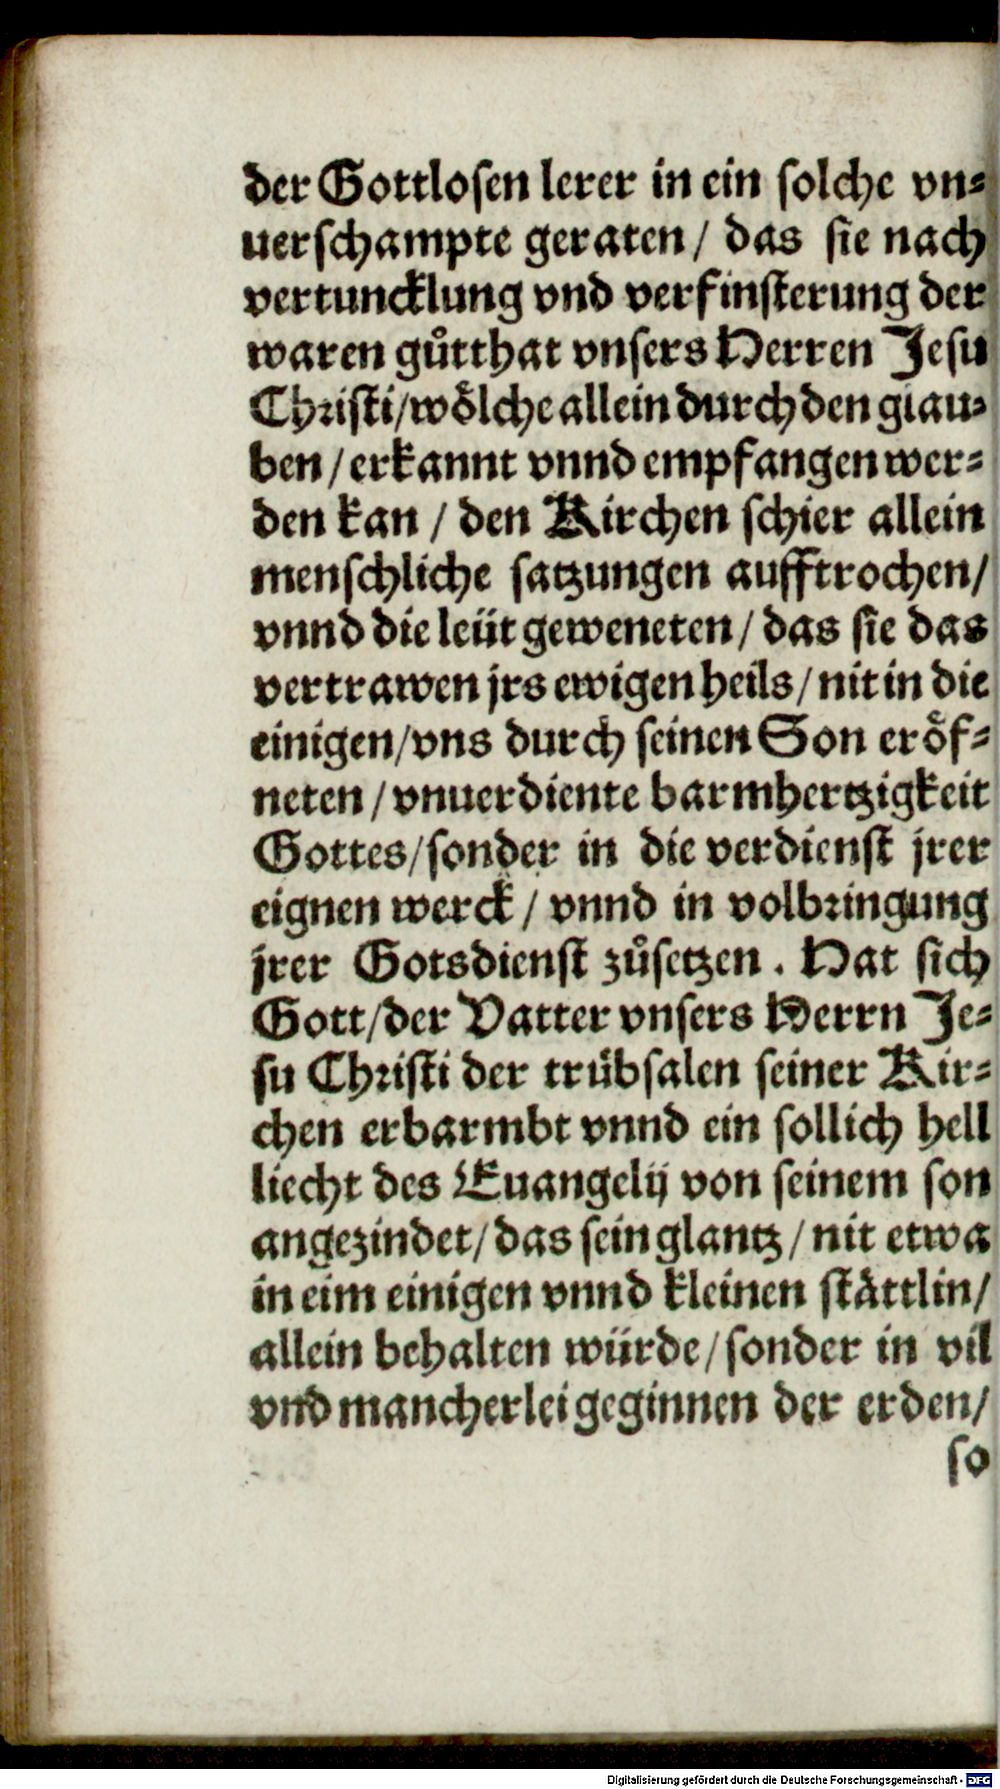 der Gottlosen lerer in ein solche vn⸗
uerschampte geraten / das sie nach
vertuncklung vnd verfinsterung der
waren gůtthat vnsers Herren Jesu
Christi / woͤlche allein durch den glau⸗
ben / erkannt vnnd empfangen wer⸗
den kan / den Kirchen schier allein
menschliche satzungen aufftrochen /
vnnd die leüt geweneten / das sie das
vertrawen jrs ewigen heils / nit in die
einigen / vns durch seinen Son eroͤf⸗
neten / vnuerdiente barmhertzigkeit
Gottes / sonder in die verdienst jrer
eignen werck / vnnd in volbringung
jrer Gotsdienst zůsetzen . Hat sich
Gott / der Vatter vnsers Herrn Je⸗
su Christi der trübsalen seiner Kir⸗
chen erbarmbt vnnd ein sollich hell
liecht des Euangelij von seinem son
angezindet / das sein glantz / nit etwa
in eim einigen vnnd kleinen staͤttlin /
allein behalten würde / sonder in vil
vnd mancherlei geginnen der erden /
so
Digitalisierung gefördert durch die Deutsche Forschungsgemeinschaft - DFG